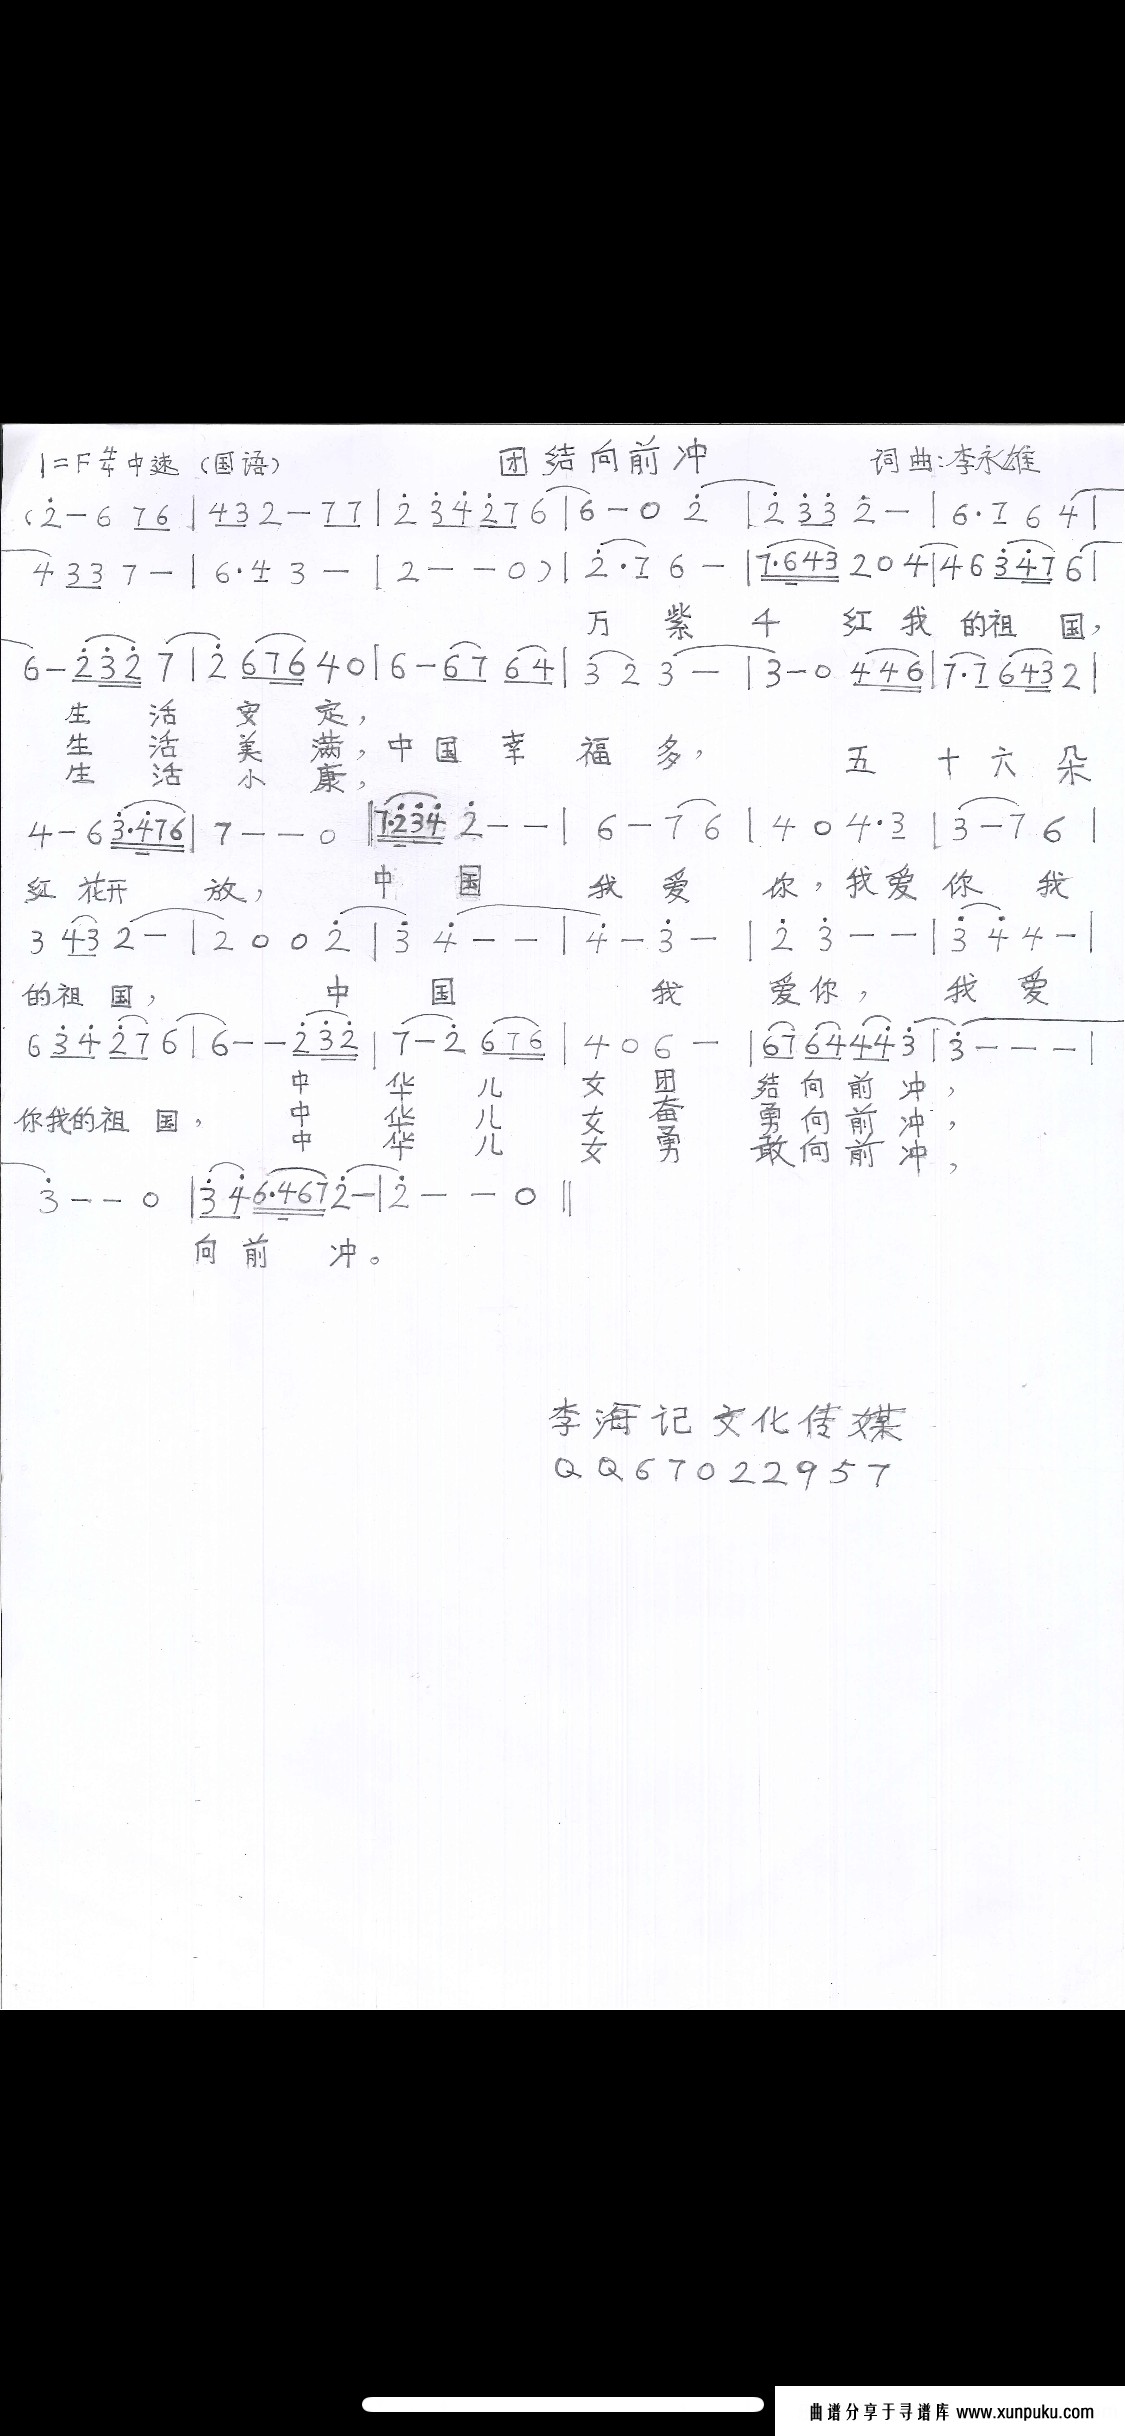 1=F 4/4 中速（国语） 团结向前冲 词曲:李永雄
(2̇-6 76|432-77|2̇ 3̇4̇2̇76|6-0 2̇|2̇3̇3̇2̇-|6·7 6 4|
4337-|6·4 3-|2--0)|2̇·7 6-|7·643 204|46 3̇4̇76|
万 紫 千 红 我 的祖 国，
6-2̇3̇2̇ 7|2̇ 676 40|6-67 64|3 2 3-|3-0 446|7·7 643 2|
生 活 安 定，
生 活 美 满，中 国 幸 福 多， 五 十 六 朵
生 活 小 康，
4-6 3̇·4̇76|7--0|7·2̇3̇4̇ 2̇--|6-76|4 0 4·3|3-7 6|
红 花开 放， 中 国 我 爱 你，我 爱 你 我
3 43 2-|2 0 0 2̇|3̇ 4̇--|4̇-3̇-|2̇ 3̇--|3̇ 4̇ 4-|
的祖 国， 中 国 我 爱你， 我 爱
6 3̇4̇ 2̇7 6|6--2̇3̇2̇|7-2̇ 676|4 0 6-|67 64 44̇ 3̇|3̇---|
中 华 儿 女 团 结 向 前 冲，
你我的祖 国， 中 华 儿 女 奋 勇 向 前 冲，
中 华 儿 女 勇 敢 向 前 冲，
3̇--0|3̇4̇ 6·467 2̇-|2̇--0‖
向 前 冲。
李海记文化传媒
QQ67022957
曲谱分享于寻谱库 www.xunpuku.com